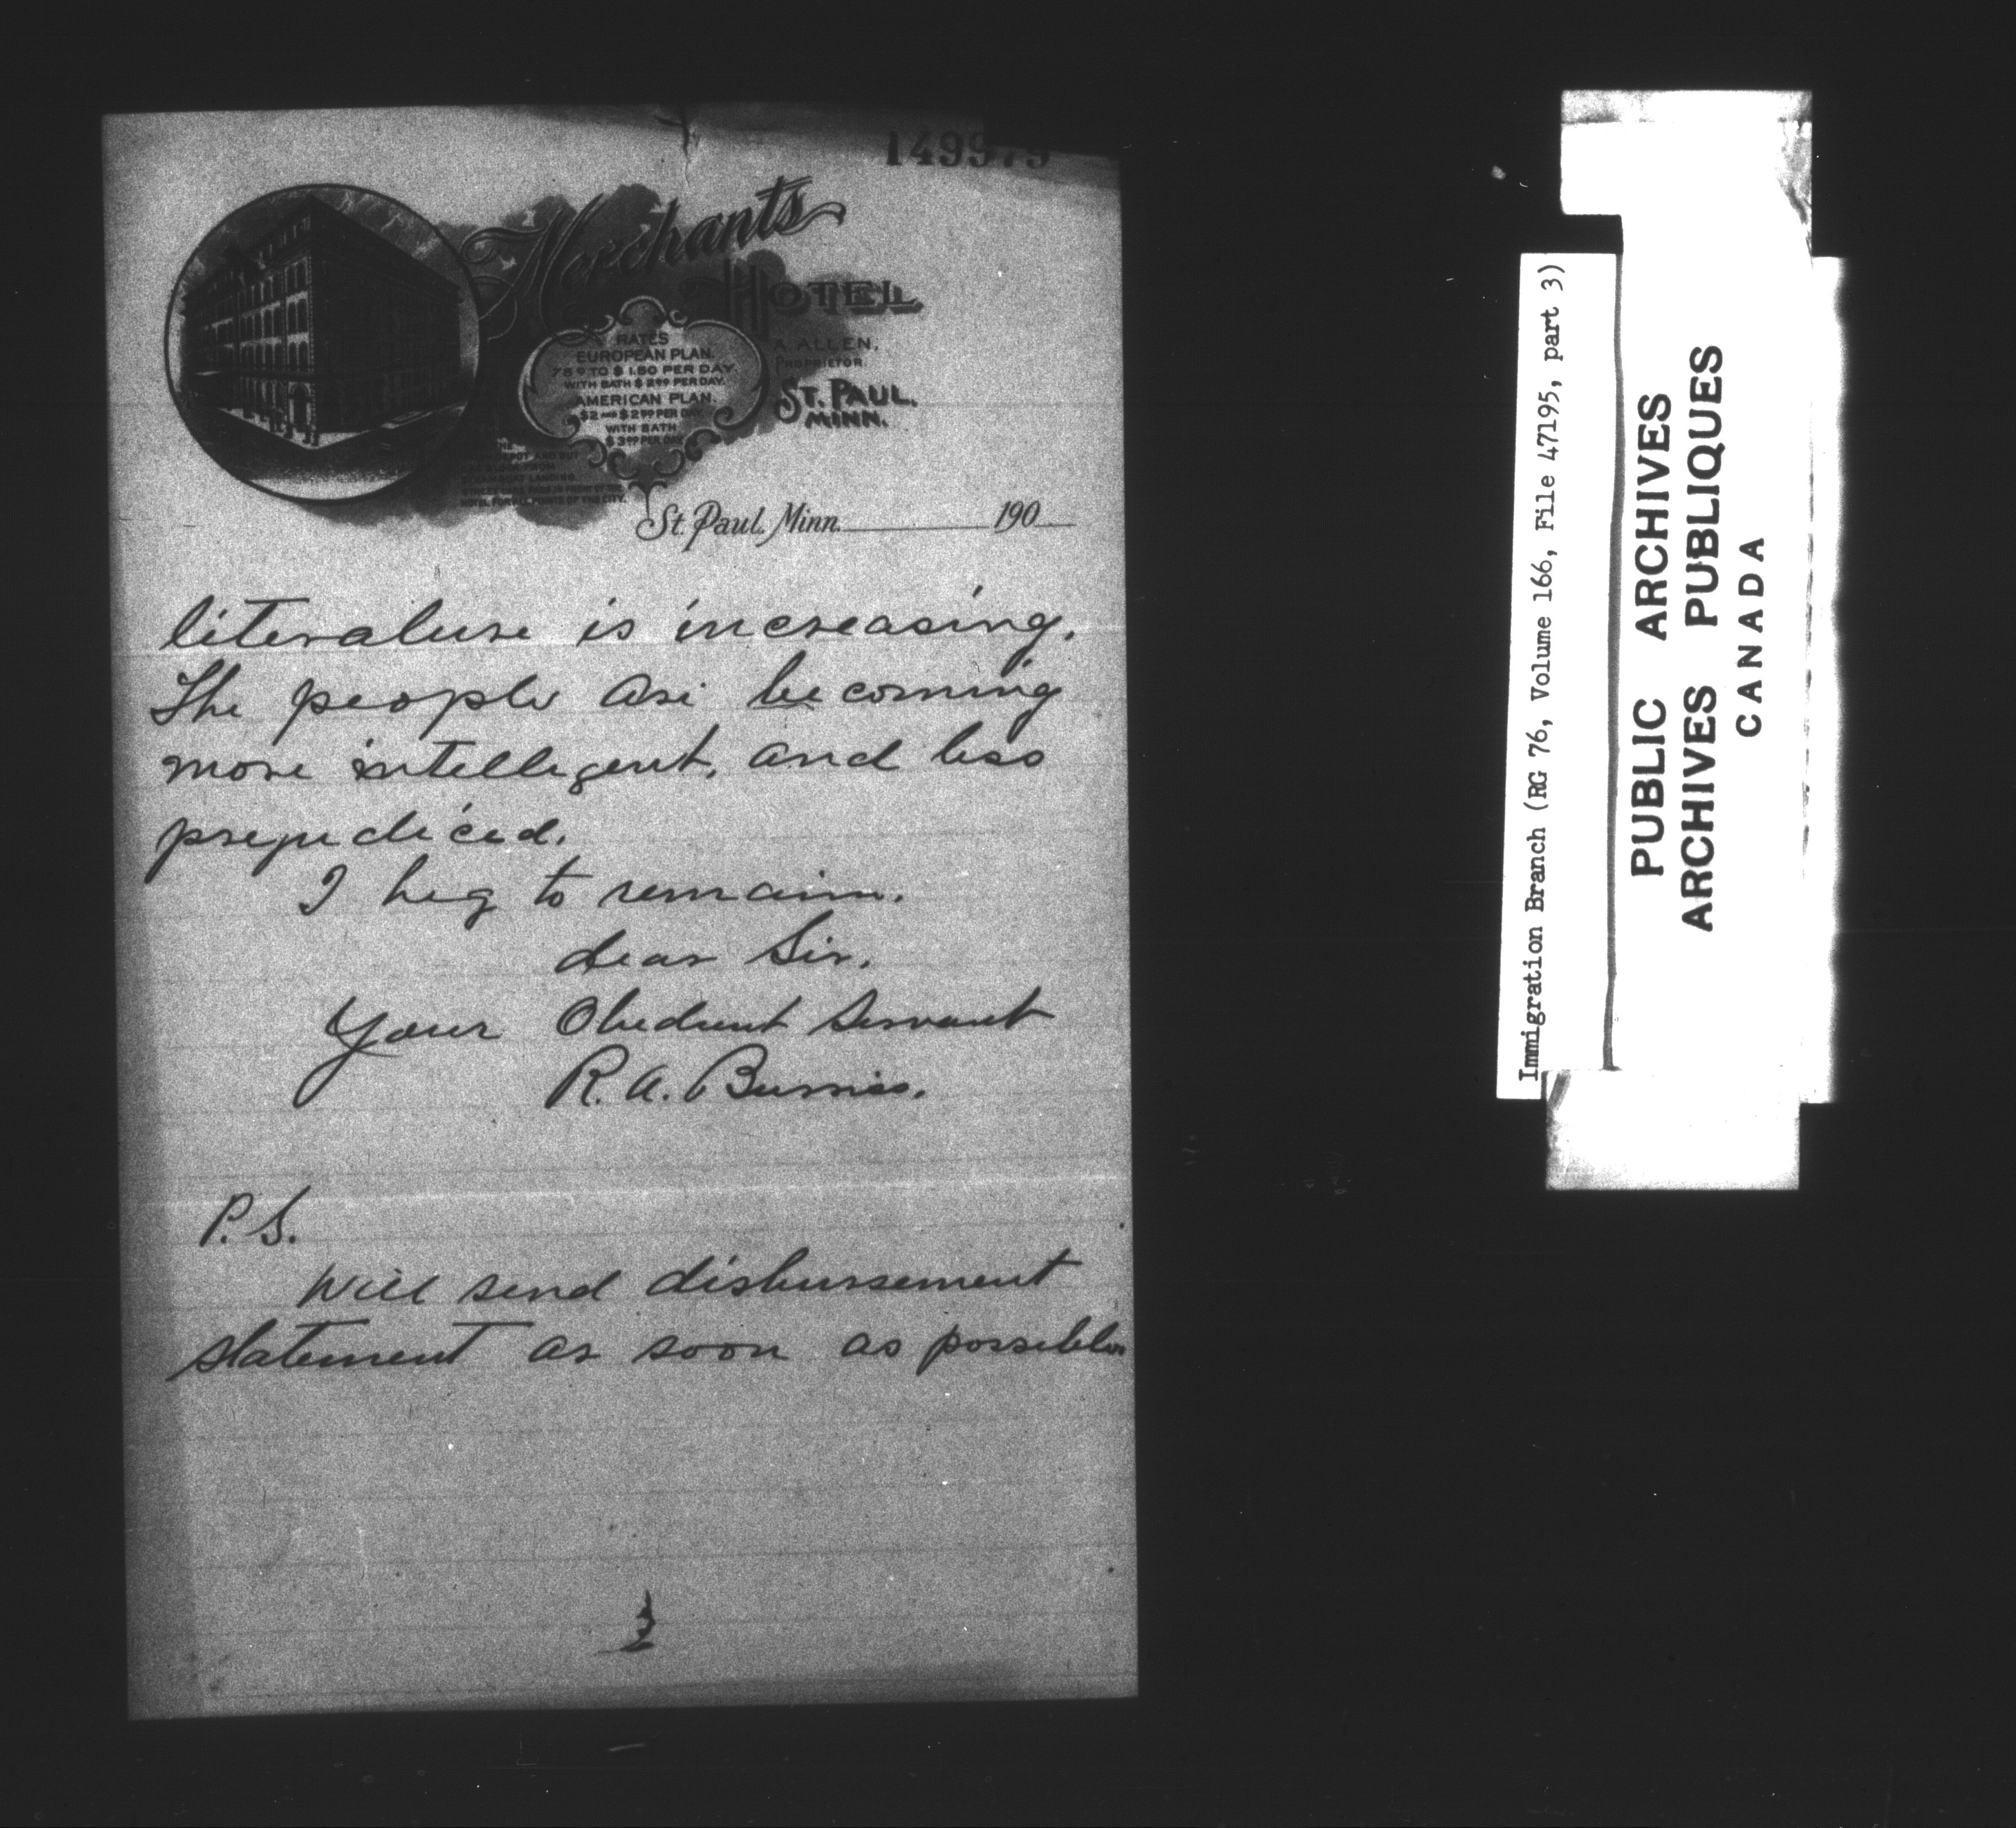 149979
Merchants
HOTEL
A. ALLEN,
PROPRIETOR
ST. PAUL,
MINN.
RATES
EUROPEAN PLAN.
75¢ TO $1.50 PER DAY
WITH BATH $2.00 PER DAY.
AMERICAN PLAN.
$2 AND $2.50 PER DAY
WITH BATH
$3.00 PER DAY
DEPOT AND BUT
BLOCK FROM
STEAMBOAT LANDING.
HOTEL FOR ALL POINTS OF THE CITY.
St. Paul, Minn. 190
literature is increasing.
The people are becoming
more intelligent, and less
prejudiced.
I beg to remain.
dear Sir.
Your Obedient Servant
R. A. Burriss.
P.S.
Will send disbursement
statement as soon as possible
Immigration Branch (RG 76, Volume 166, File 47195, part 3)
PUBLIC ARCHIVES
ARCHIVES PUBLIQUES
CANADA